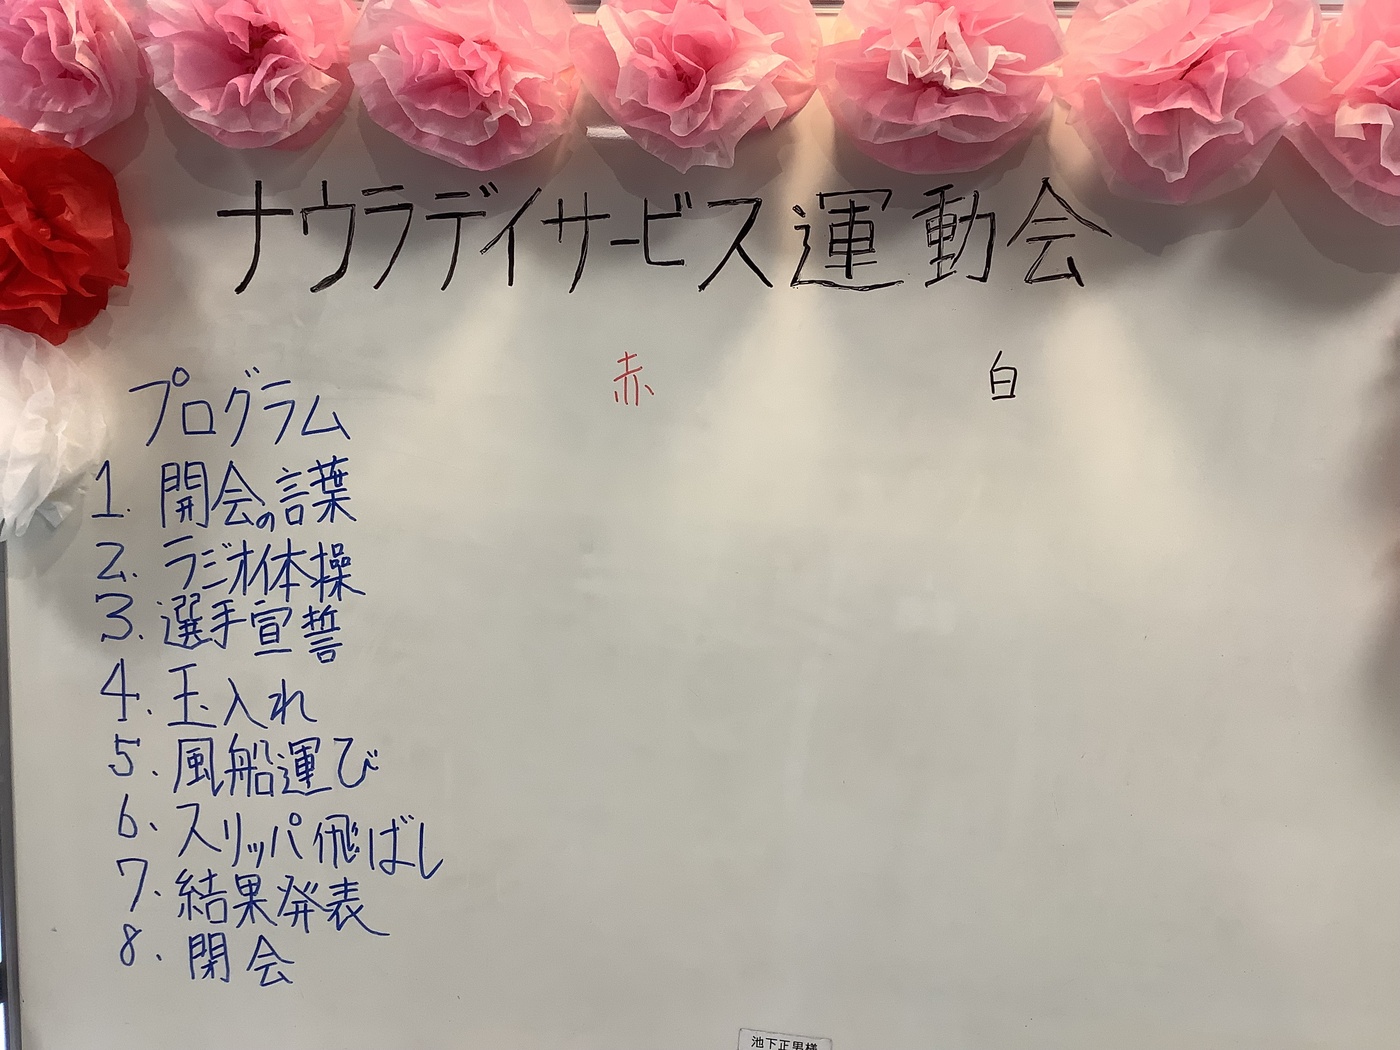 ナウラデイサービス運動会
赤 白
プログラム
1. 開会の言葉
2. ラジオ体操
3. 選手宣誓
4. 玉入れ
5. 風船運び
6. スリッパ飛ばし
7. 結果発表
8. 閉会
池下正男様